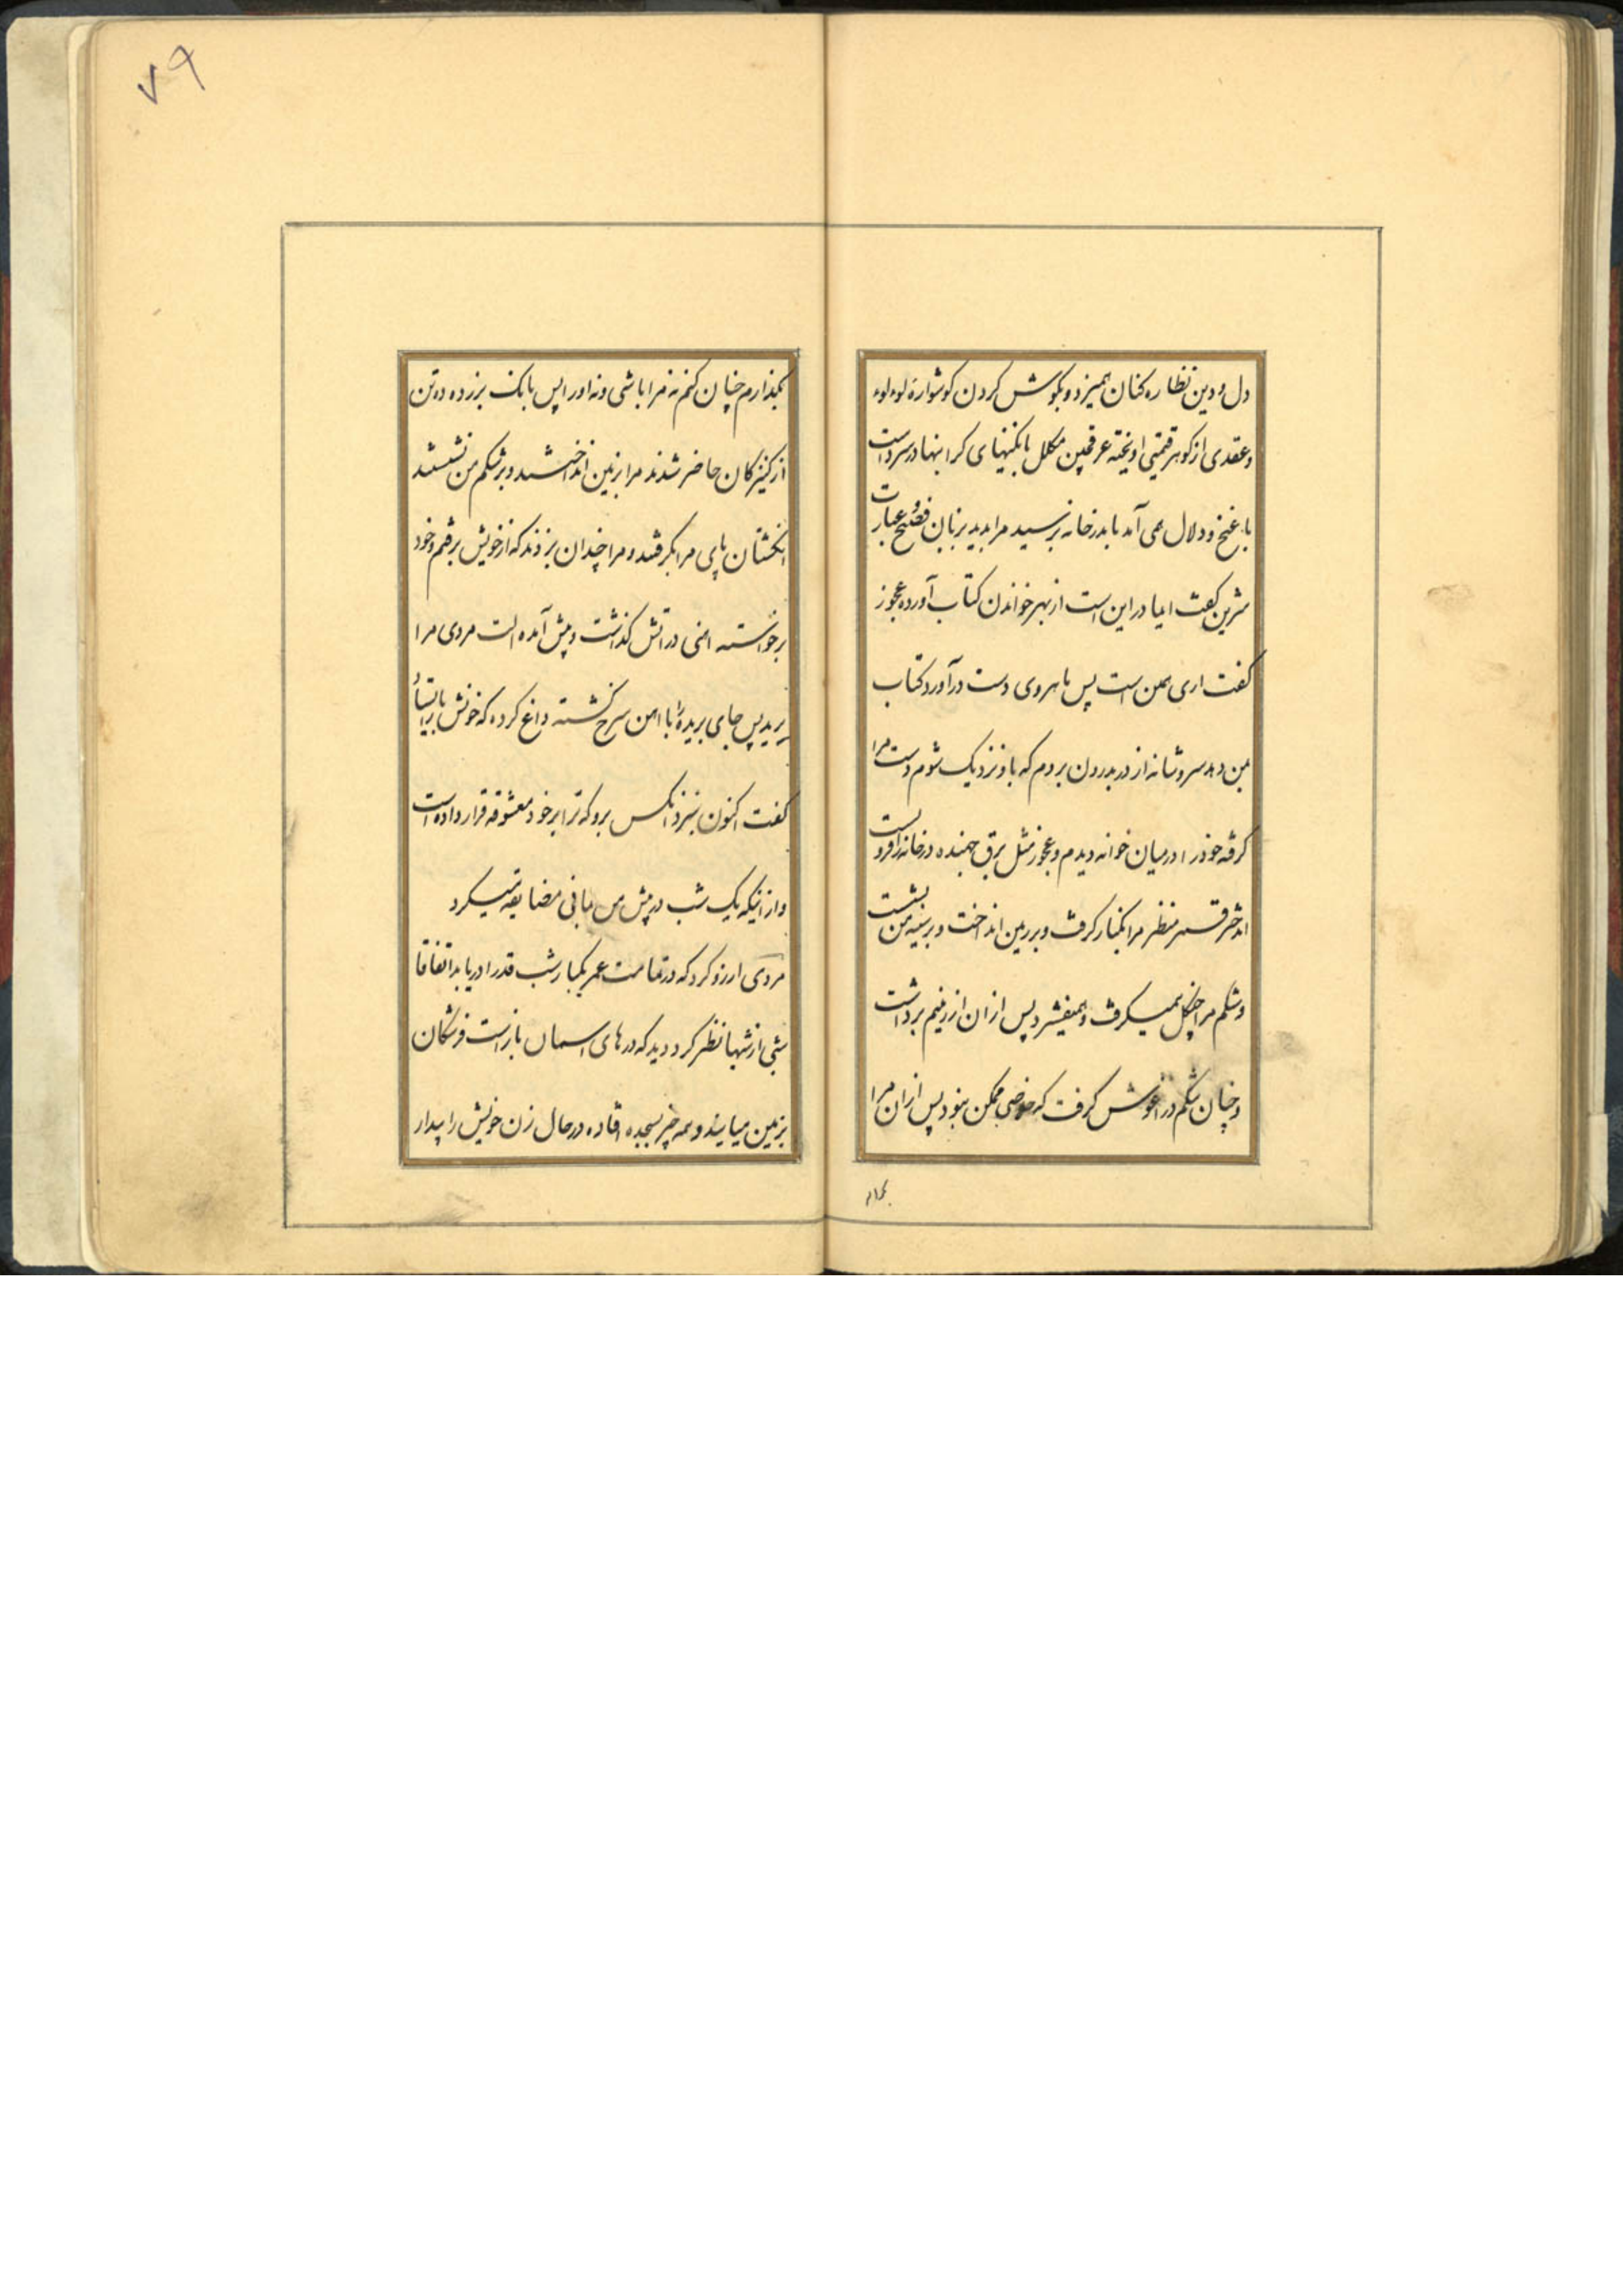 دل و دین نظاره کنان همیزد و بگوش کردن گوشواره لوءلوء
و عقدی از گوهر قیمتی اویخته عرقچین مکلل بانگینهای گرانبها در سر داست
با غنج و دلال همی آمد تا بدر خانه برسید مرا بدید بزبان فصیح و عبارت
شرین گفت ایمادر این است از بهر خواندن کتاب آورده عجوز
گفت اری همین است پس ماهروی دست درآورد کتاب
بمن دهد سر و شانه از در بدرون بردم که باو نزدیک شوم دست مرا
گرفته خود را در میان خوانه دیدم و عجوز مثل برق جهنده در خانه را فرو بست
اندختر قمر منظر مرا بکنار گرفت و بر زمین انداخت و بر سینه من بنشست
و شکم مرا چنگل همیگرفت و همیفشرد پس از ان از زمینم برداشت
و چنان تنگم در اغوش گرفت که خلاصی ممکن نبود پس از ان مرا
۷۹
بگذارم چنان کنم نه مرا باشی و نه او را پس بانک بر زده ده تن
از کنیزکان حاضر شدند مرا بزمین انداختند و بر شکم من نشستند
انگشتان پای مرا بگرفتند و مرا چندان بزدند که از خویش برفتم و خود
برخواسته اهنی در اتش گذاشت و پیش آمده الت مردی مرا
برید پس جای بریده را با اهن سرخ گشته داغ کرده که خونش باز ایستاد
گفت اکنون بنزد انکس برو که ترا بر خود معشوقه قرار داده است
و از اینکه یک شب در پیش من بمانی مضایقه میکرد
مردی ارزو کرد که در تمامت عمر یکبار شب قدر را دریابد اتفاقا
شبی از شبها نظر کرد دید که درهای اسمان باز است فرشتگان
بزمین میایند و همه چیز بسجده افتاده در حال زن خویش را بیدار